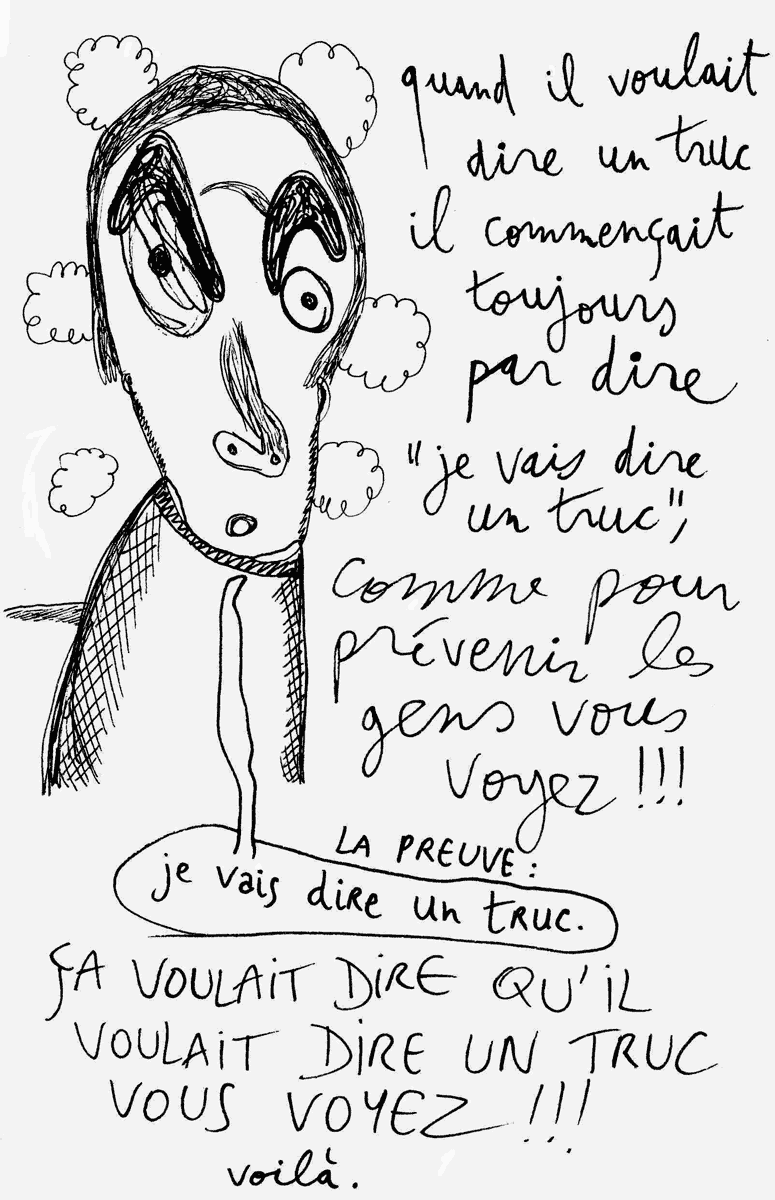 quand il voulait
dire un truc
il commençait
toujours
par dire
"je vais dire
un truc",
comme pour
prévenir les
gens vous
voyez !!!
LA PREUVE :
je vais dire un truc.
ÇA VOULAIT DIRE QU'IL
VOULAIT DIRE UN TRUC
VOUS VOYEZ !!!
voilà.